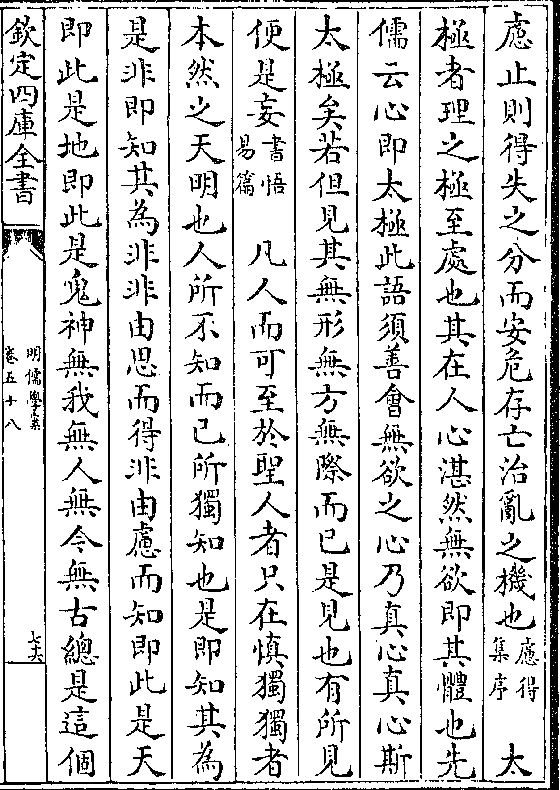 慮止則得失之分而安危存亡治亂之機也慮得集序　太
極者理之極至處也其在人心湛然無欲即其體也先
儒云心即太極此語須善會無欲之心乃真心真心斯
太極矣若但見其無形無方無際而已是見也有所見
便是妄書悟易篇　凡人而可至於聖人者只在慎獨獨者
本然之天明也人所不知而已所獨知也是即知其為
是非即知其為非非由思而得非由慮而知即此是天
即此是地即此是鬼神無我無人無今無古總是這個
欽定四庫全書
明儒學案
卷五十八
七六